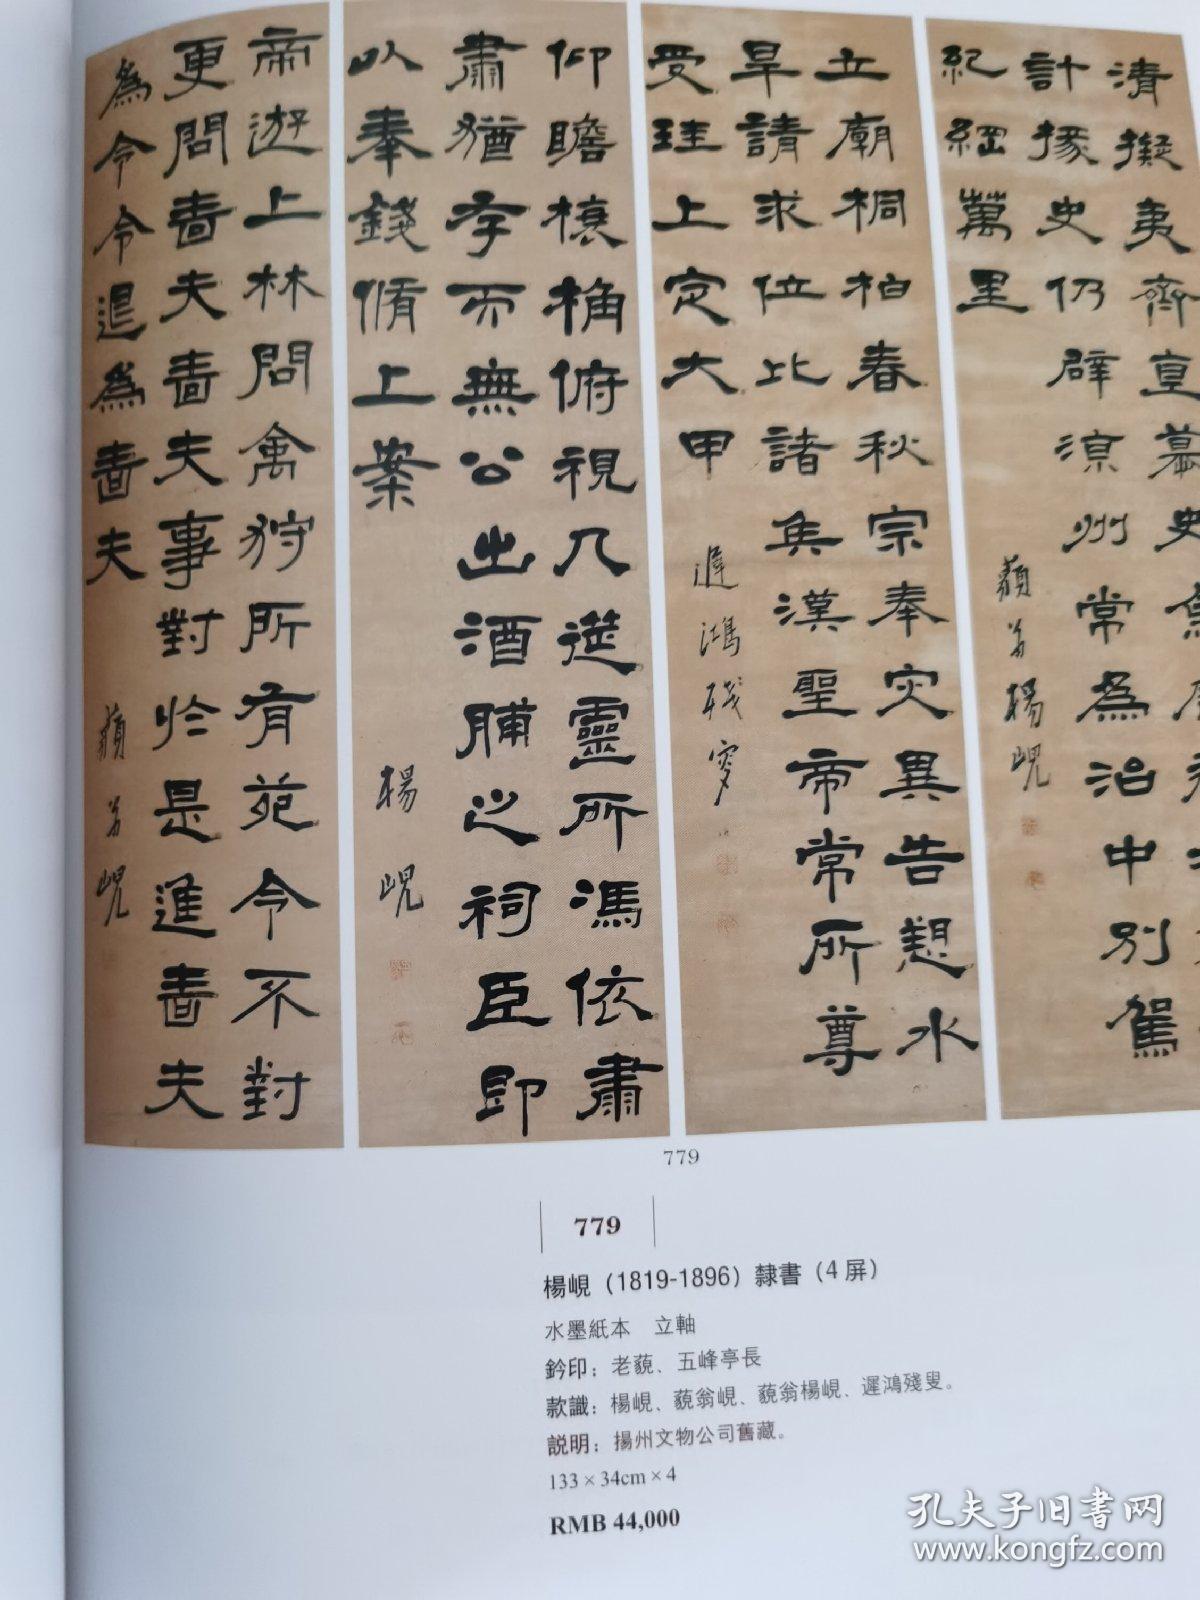 清擬夷齊直慕史
計掾史仍辟涼州常為治中別駕
紀綱萬里
藐翁楊峴
立廟桐柏春秋宗奉灾異告愬水
旱請求位比諸矦漢聖帝常所尊
受珪上宗大甲
遲鴻殘叟
仰瞻榱桷俯視几筵靈所馮依肅
肅猶存而無公出酒脯之祠臣即
以奉錢脩上案
楊峴
帝遊上林問禽狩所有苑令不對
更問嗇夫嗇夫事對於是進嗇夫
為令令退為嗇夫
藐翁峴
779
779
楊峴（1819-1896）隸書（4屏）
水墨紙本 立軸
鈐印：老藐、五峰亭長
款識：楊峴、藐翁峴、藐翁楊峴、遲鴻殘叟。
説明：揚州文物公司舊藏。
133×34cm×4
RMB 44,000
孔夫子旧书网
www.kongfz.com